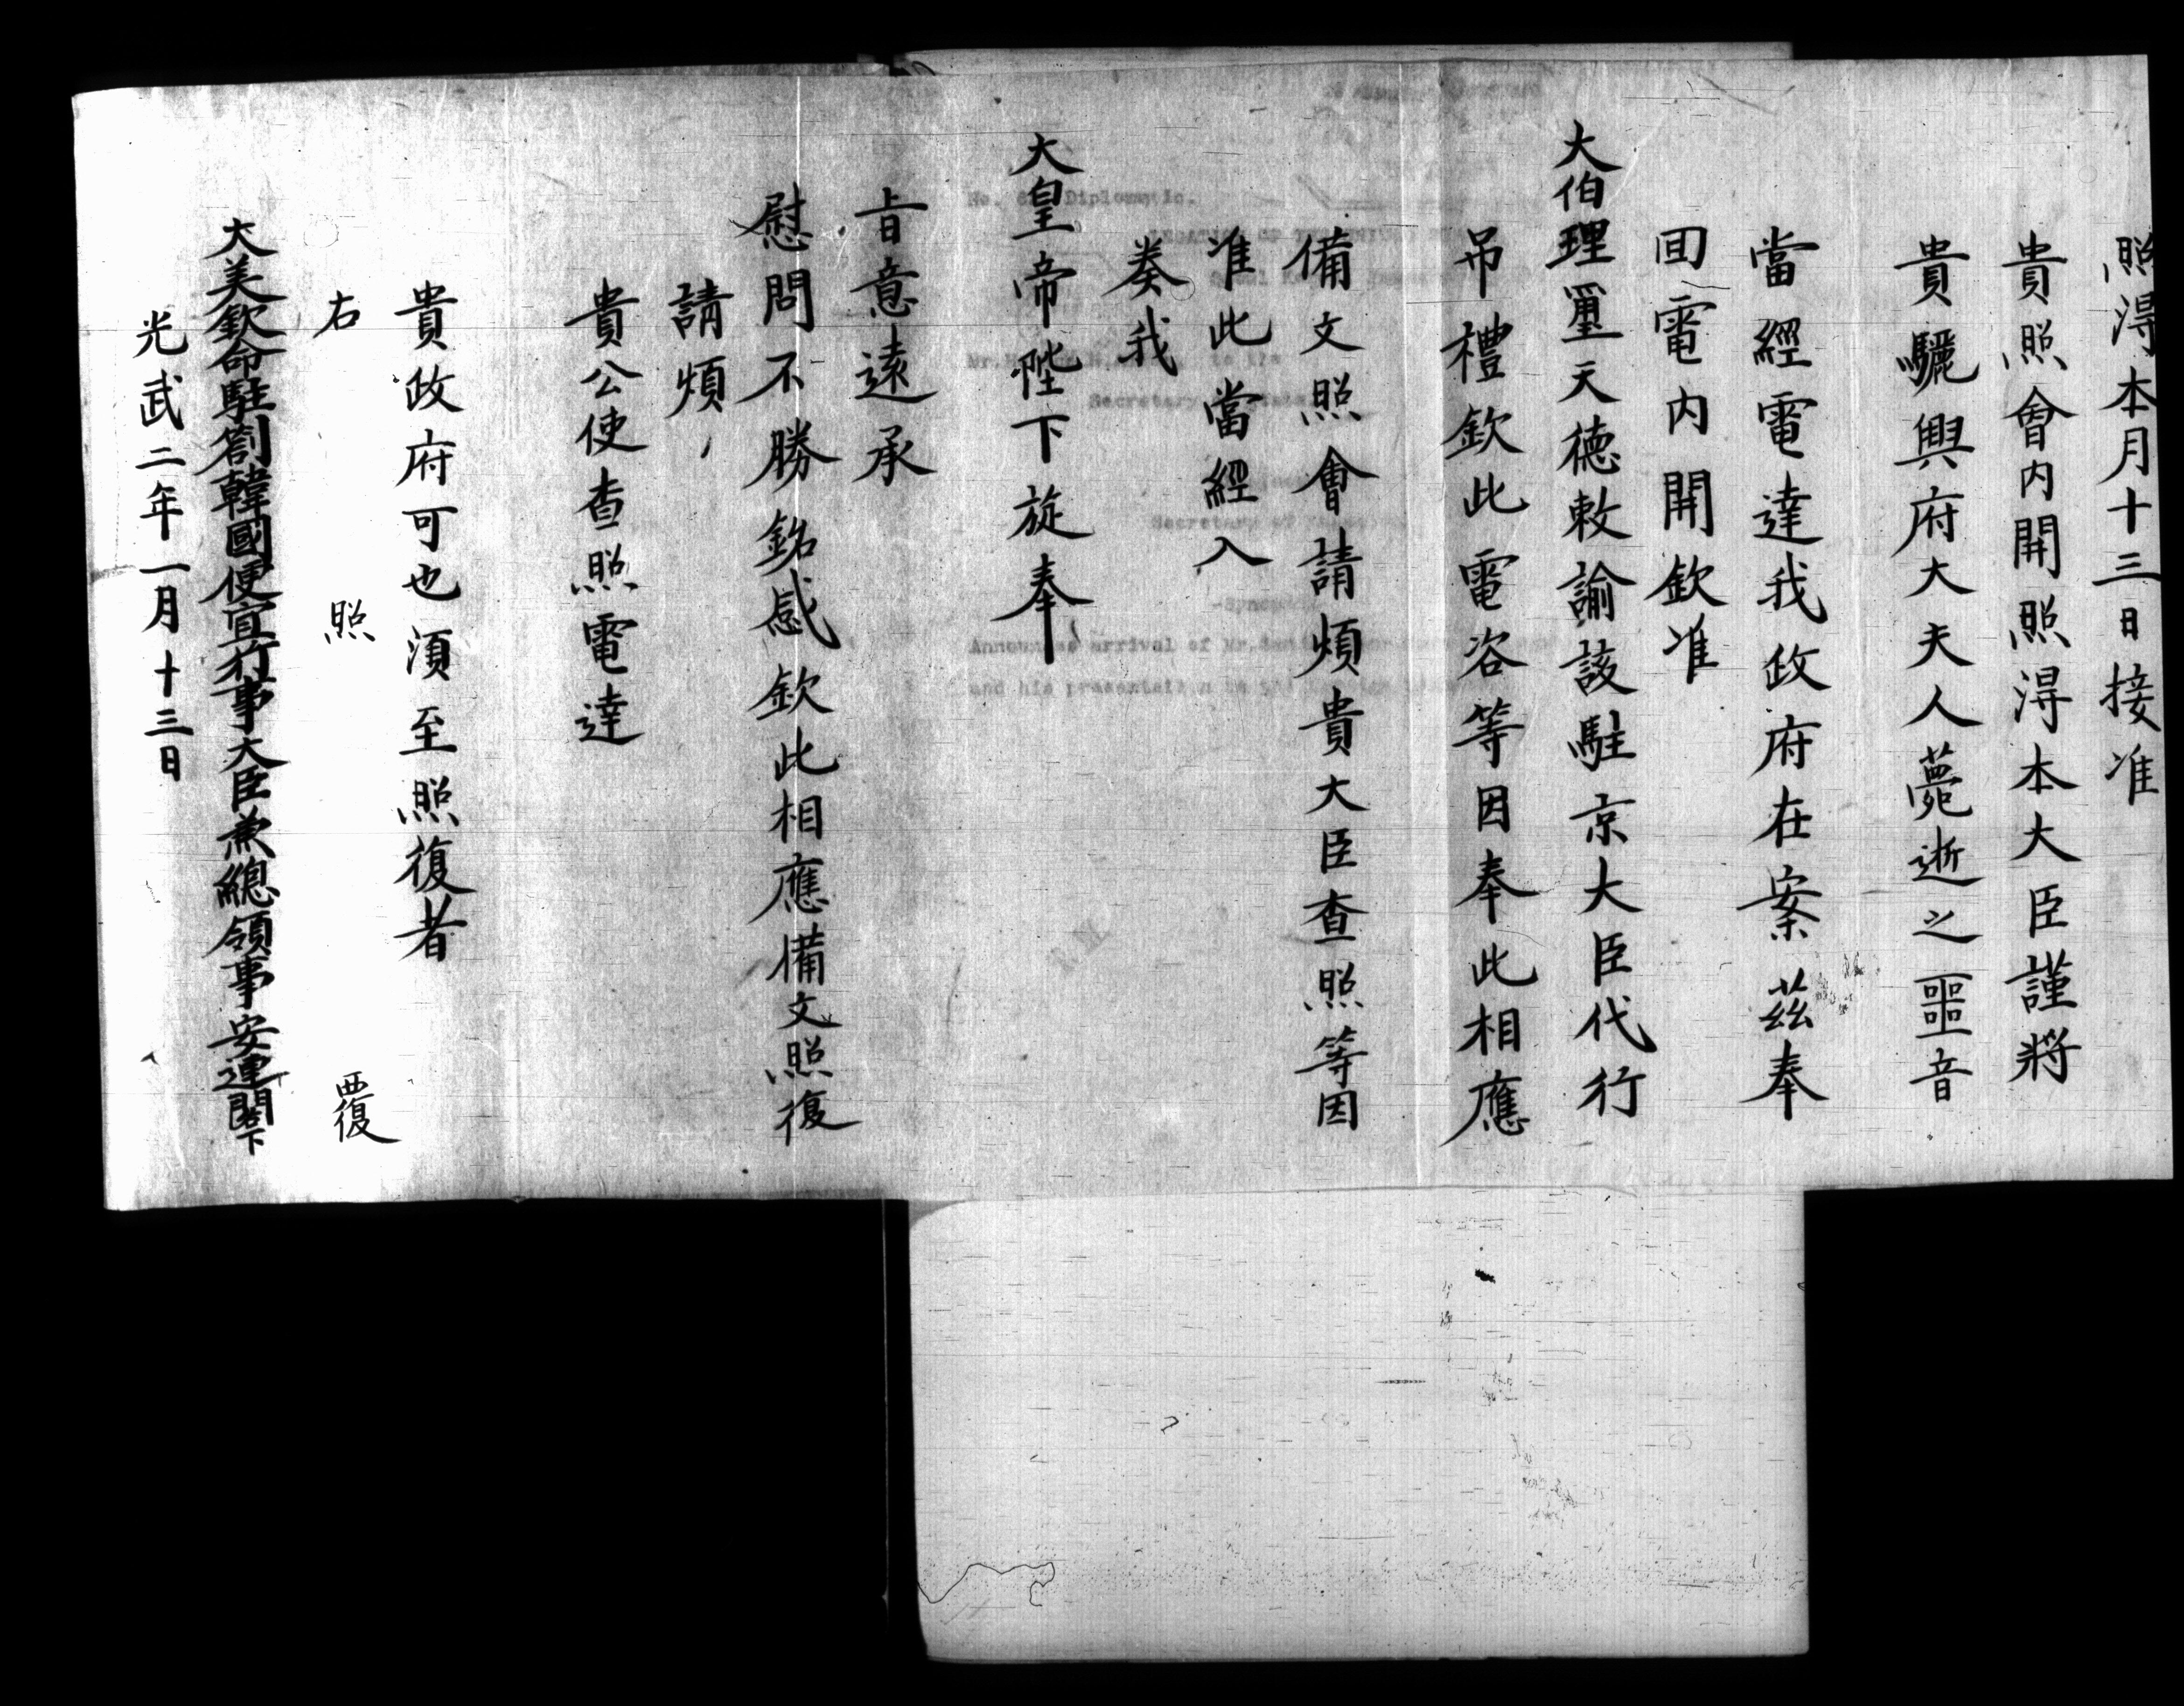 照淂本月十三日接准
貴照會內開照淂本大臣謹將
貴驪興府大夫人薨逝之噩音
當經電達我政府在案茲奉
回電內開欽准
大伯理璽天德敕諭該駐京大臣代行
吊禮欽此電咨等因奉此相應
備文照會請煩貴大臣查照等因
准此當經入
奏我
大皇帝陛下旋奉
旨意遠承
慰問不勝銘感欽此相應備文照復
請煩
貴公使查照電達
貴政府可也須至照復者
右 照 覆
大美欽命駐劄韓國便宜行事大臣兼總領事安連閣下
光武二年一月十三日
No. Diplomatic.
to the
Secretary of State
Secretary of State
-Synopsis-
Announces arrival of Mr.
and his presentation